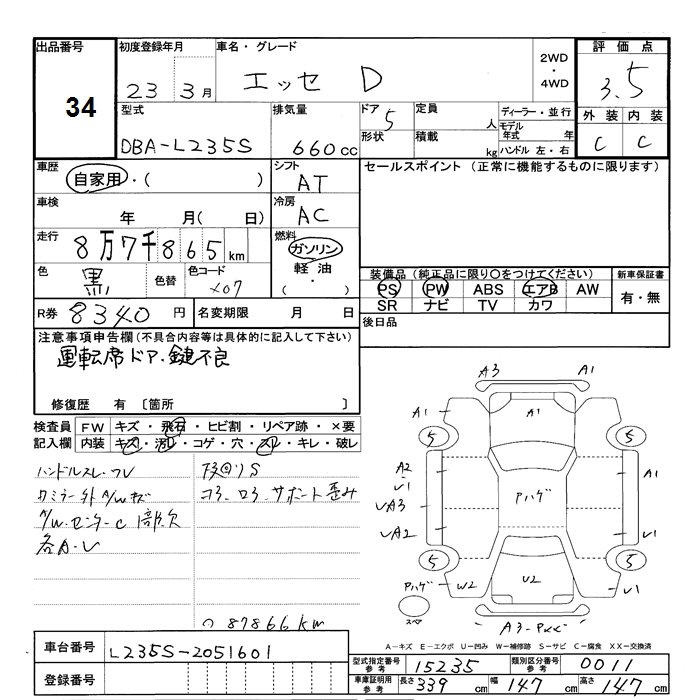 出品番号
34
初度登録年月
23 3月
車名・グレード
エッセ D
2WD
・
4WD
評価点
3.5
型式
DBA-L235S
排気量
660cc
ドア 5
形状
定員 人
積載 kg
ディーラー・並行
モデル年式 年
ハンドル 左・右
外装 内装
C C
車歴
自家用・( )
シフト
AT
セールスポイント (正常に機能するものに限ります)
車検
年 月( 日)
冷房
AC
走行
8万7千865km
燃料
ガソリン
軽油・
( )
色
黒
色替
色コード
X07
装備品(純正品に限り○をつけてください)
PS PW ABS エアB AW
SR ナビ TV カワ
新車保証書
有・無
R券 8340円
名変期限 月 日
後日品
注意事項申告欄(不具合内容等は具体的に記入して下さい)
運転席ドア・鍵不良
修復歴 有 〔箇所 〕
検査員 FW キズ・飛石・ヒビ割・リペア跡・×要
記入欄 内装 キズ・汚レ・コゲ・穴・スレ・キレ・破レ
ハンドルスレ・フレ
下回りS
コラ、ロラ、サポート歪み
各A・U
87866km
A3 A1
A1 A1 A1
5 5
A2 U1 A1
UA3 Pハゲ
UA2 U1
5 5
Pハゲ W2 U2 U1
スペア
A3-PXX
A-キズ E-エクボ U-凹み W-補修跡 S-サビ C-腐食 XX-交換済
車台番号 L235S-2051601
登録番号
型式指定番号参考 15235 類別区分番号参考 0011
車庫証明用参考 長さ 339cm 幅 147cm 高さ 147cm